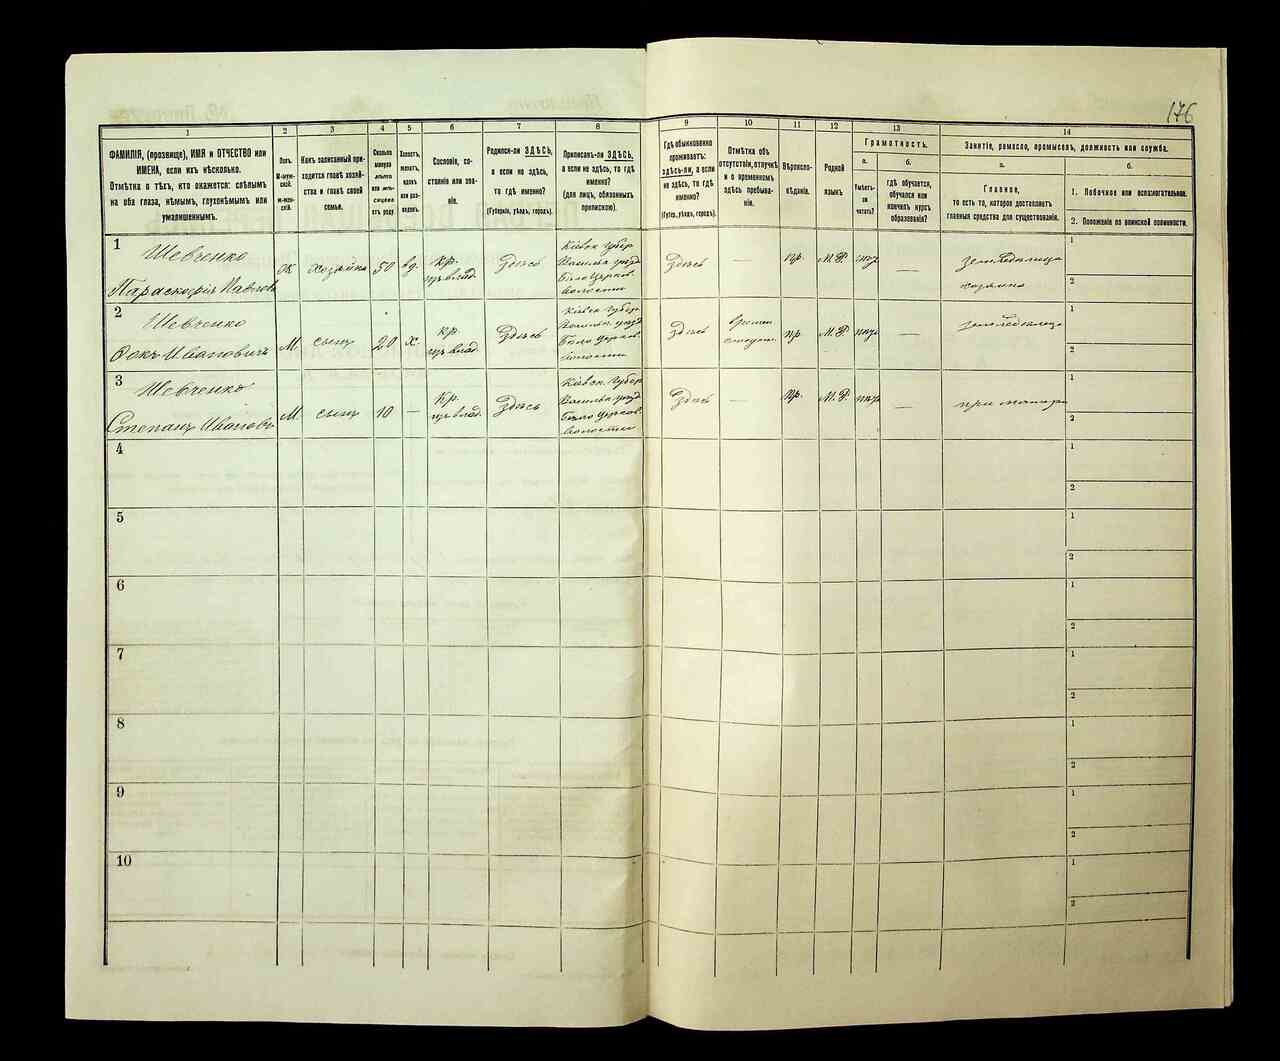 176
1
2
3
4
5
6
7
8
9
10
11
12
13
14
ФАМИЛІЯ, (прозвище), ИМЯ и ОТЧЕСТВО или
ИМЕНА, если ихъ нѣсколько.
Отмѣтка о тѣхъ, кто окажется: слѣпымъ
на оба глаза, нѣмымъ, глухонѣмымъ или
умалишеннымъ.
Полъ.
М-мужской.
Ж-женской.
Какъ записанный приходится
главѣ хозяйства
и главѣ своей
семьи.
Сколько
минуло
лѣтъ
или мѣсяцевъ
отъ роду
Холостъ,
женатъ,
вдовъ
или разведенъ.
Сословіе, состояніе
или званіе.
Родился-ли ЗДѢСЬ,
а если не здѣсь,
то гдѣ именно?
(Губернія, уѣздъ, городъ).
Приписанъ-ли ЗДѢСЬ,
а если не здѣсь, то гдѣ
именно?
(для лицъ, обязанныхъ
припискою).
Гдѣ обыкновенно
проживаетъ:
здѣсь-ли, а если
не здѣсь, то гдѣ
именно?
(Губер., уѣздъ, городъ).
Отмѣтка объ
отсутствіи, отлучкѣ
и о временномъ
здѣсь пребываніи.
Вѣроисповѣданіе.
Родной
языкъ.
Грамотность.
а.
Умѣетъ-
ли
читать?
б.
гдѣ обучается,
обучался или
кончилъ курсъ
образованія?
Занятіе, ремесло, промыселъ, должность или служба.
а.
Главное,
то есть то, которое доставляетъ
главныя средства для существованія.
б.
1. Побочное или вспомогательное.
2. Положеніе по воинской повинности.
1
Шевченко
Параскофія Павлова
Ж
хозяйка
50
вд.
кр.
изъ влад.
Здѣсь
Кіевск. Губер
Васильк. уезд
Бѣло Церков.
волости
Здѣсь
—
пр.
М.Р.
нѣтъ
—
земледѣлица
хозяйка
1
2
2
Шевченко
Фокъ Ивановичъ
М.
сынъ
20
х.
кр.
изъ влад.
Здѣсь
Кіевск. Губер.
Васильк. уезд
Бѣло Церков.
волости
здѣсь
времен
отсут.
пр
М.Р.
нѣтъ
—
земледѣлецъ
1
2
3
Шевченко
Степанъ Ивановъ
М.
сынъ
10
—
кр.
изъ влад.
Здѣсь
Кіевск. Губер.
Васильк. уезд
Бѣло Церков.
волости
Здѣсь
—
пр.
М.Р.
нѣтъ
—
при матери
1
2
4
1
2
5
1
2
6
1
2
7
1
2
8
1
2
9
1
2
10
1
2